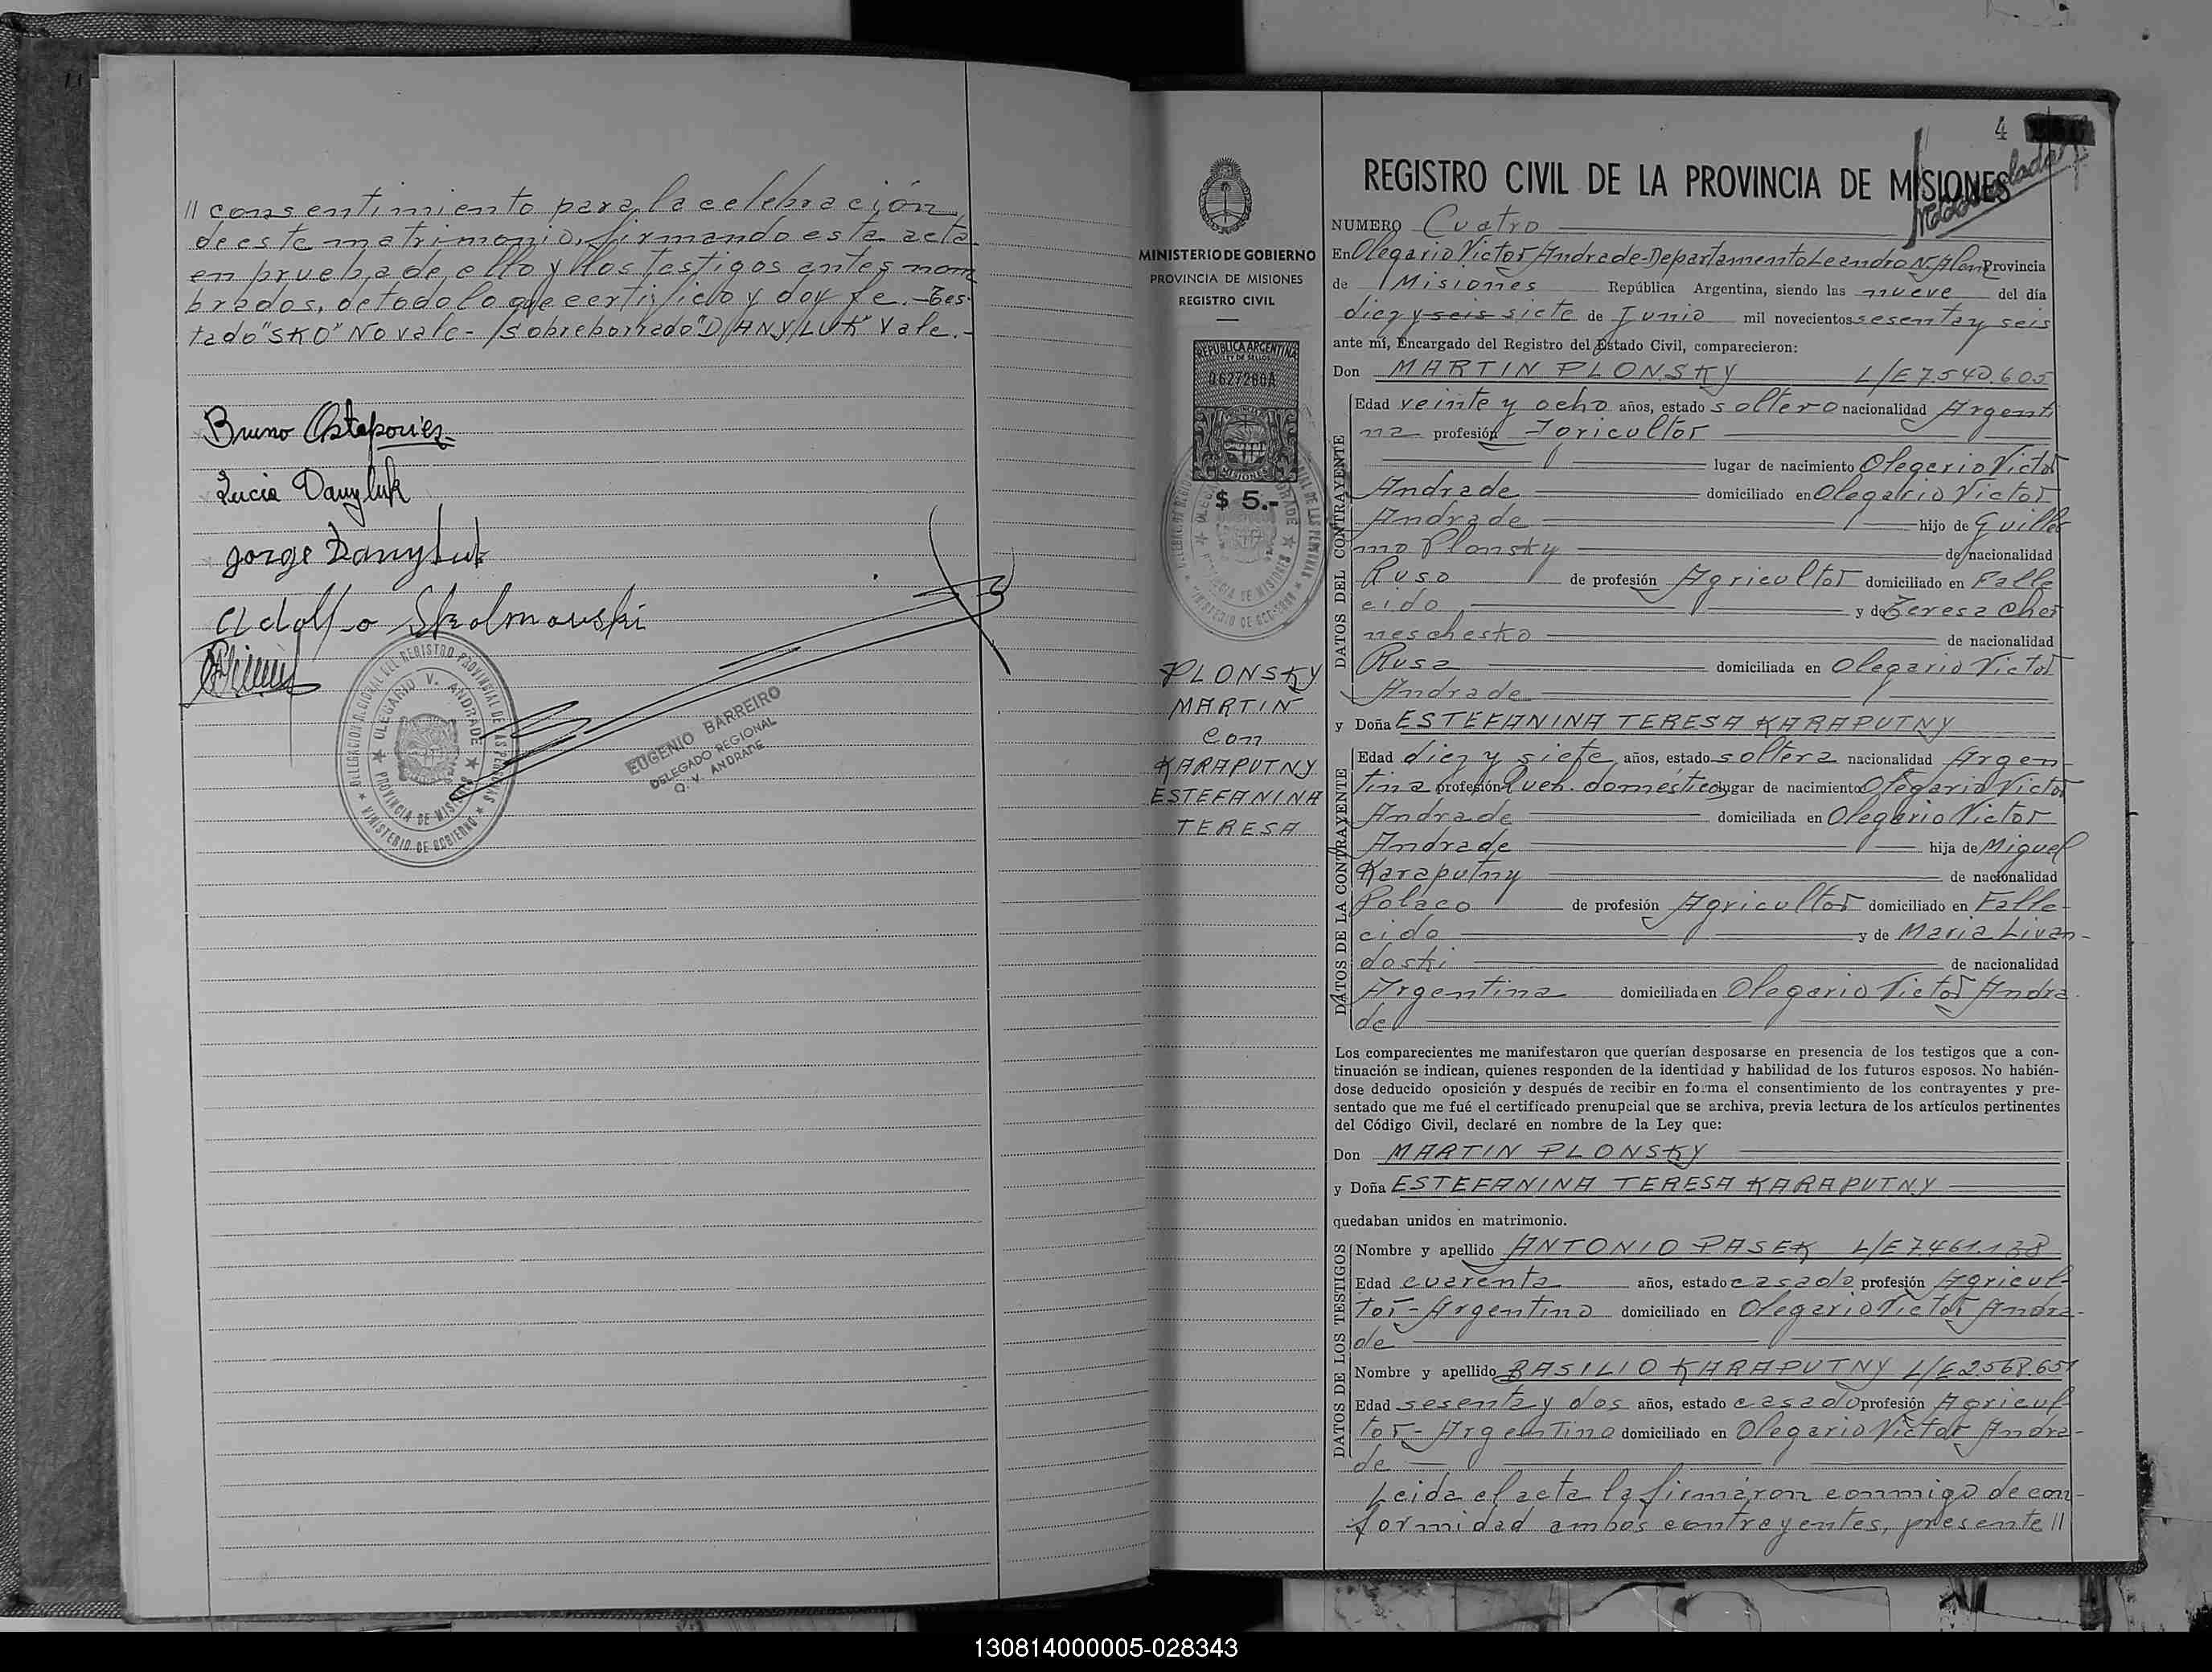 // consentimiento para la celebración
de este matrimonio, firmando esta acta
en prueba de ello y los testigos antes nom
brados, de todo lo que certifico y doy fe.- Tes-
tado "SKO" No vale - Sobreborrado "DANYLUK" Vale.-
Bruno Ostapowiez
Lucia Danyluk
Jorge Danyluk
Adolfo Skolmowski
DELEGACION REGIONAL DEL REGISTRO PROVINCIAL DE LAS PERSONAS
OLEGARIO V. ANDRADE
PROVINCIA DE MISIONES
MINISTERIO DE GOBIERNO
EUGENIO BARREIRO
DELEGADO REGIONAL
O. V. ANDRADE
MINISTERIO DE GOBIERNO
PROVINCIA DE MISIONES
REGISTRO CIVIL
REPUBLICA ARGENTINA
LEY DE SELLOS
0627260A
MISIONES
$ 5.-
PLONSKY
MARTIN
con
KARAPUTNY
ESTEFANINA
TERESA
4
REGISTRO CIVIL DE LA PROVINCIA DE MISIONES
NUMERO Cuatro
En Olegario Victor Andrade-Departamento Leandro N. Alem Provincia
de Misiones República Argentina, siendo las nueve del día
diez y seis siete de Junio mil novecientos sesenta y seis
ante mí, Encargado del Registro del Estado Civil, comparecieron:
Don MARTIN PLONSKY L/E 7.540.605
DATOS DEL CONTRAYENTE
Edad veinte y ocho años, estado soltero nacionalidad Argenti
na profesión
lugar de nacimiento Olegario Victor
Andrade domiciliado en Olegario Victor
Andrade hijo de Guiller
mo Plonsky de nacionalidad
Ruso de profesión Agricultor domiciliado en Falle
cido y de Teresa Cher
neschesko de nacionalidad
Rusa domiciliada en Olegario Victor
Andrade
y Doña ESTEFANINA TERESA KARAPUTNY
DATOS DE LA CONTRAYENTE
Edad diez y siete años, estado soltera nacionalidad Argen
tina profesión Queh. domésticos lugar de nacimiento Olegario Victor
Andrade domiciliada en Olegario Victor
Andrade hija de Miguel
Karaputny de nacionalidad
Polaco de profesión Agricultor domiciliado en Falle
cido y de Maria Livan-
doski de nacionalidad
Argentina domiciliada en Olegario Victor Andra
de
Los comparecientes me manifestaron que querían desposarse en presencia de los testigos que a con-
tinuación se indican, quienes responden de la identidad y habilidad de los futuros esposos. No habién-
dose deducido oposición y después de recibir en forma el consentimiento de los contrayentes y pre-
sentado que me fué el certificado prenupcial que se archiva, previa lectura de los artículos pertinentes
del Código Civil, declaré en nombre de la Ley que:
Don MARTIN PLONSKY
y Doña ESTEFANINA TERESA KARAPUTNY
quedaban unidos en matrimonio.
DATOS DE LOS TESTIGOS
Nombre y apellido ANTONIO PASEK L/E 7.461.138
Edad cuarenta años, estado casado profesión Agricul-
tor- Argentino domiciliado en Olegario Victor Andra-
de
Nombre y apellido BASILIO KARAPUTNY L/E 2.568.651
Edad sesenta y dos años, estado casado profesión Agricul
tor- Argentino domiciliado en Olegario Victor Andra-
de
Leida el acta la firmaron conmigo de con-
formidad ambos contrayentes, presente //
130814000005-028343